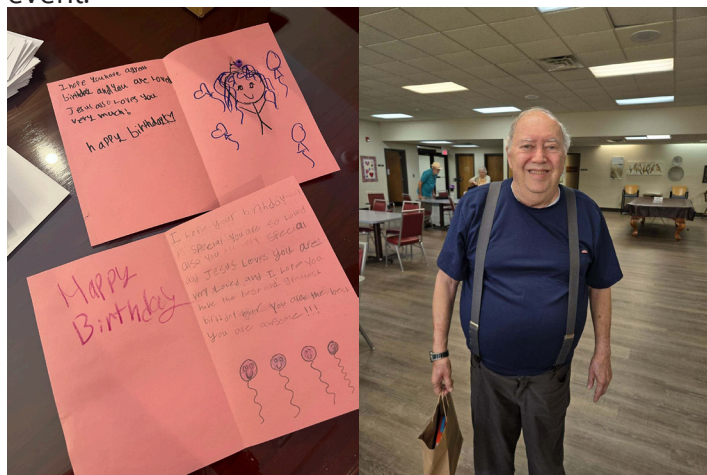 event.
I hope you have a great
birthday and you are loved
Jesus also Loves you
very much!
happy birthday!
Happy
Birthday
I hope your birthday
is special you are so loved
also you are special
and Jesus Loves you are
very Loved and I hope you
have the best and greatest
birthday ever. You are the best
you are awesome!!!